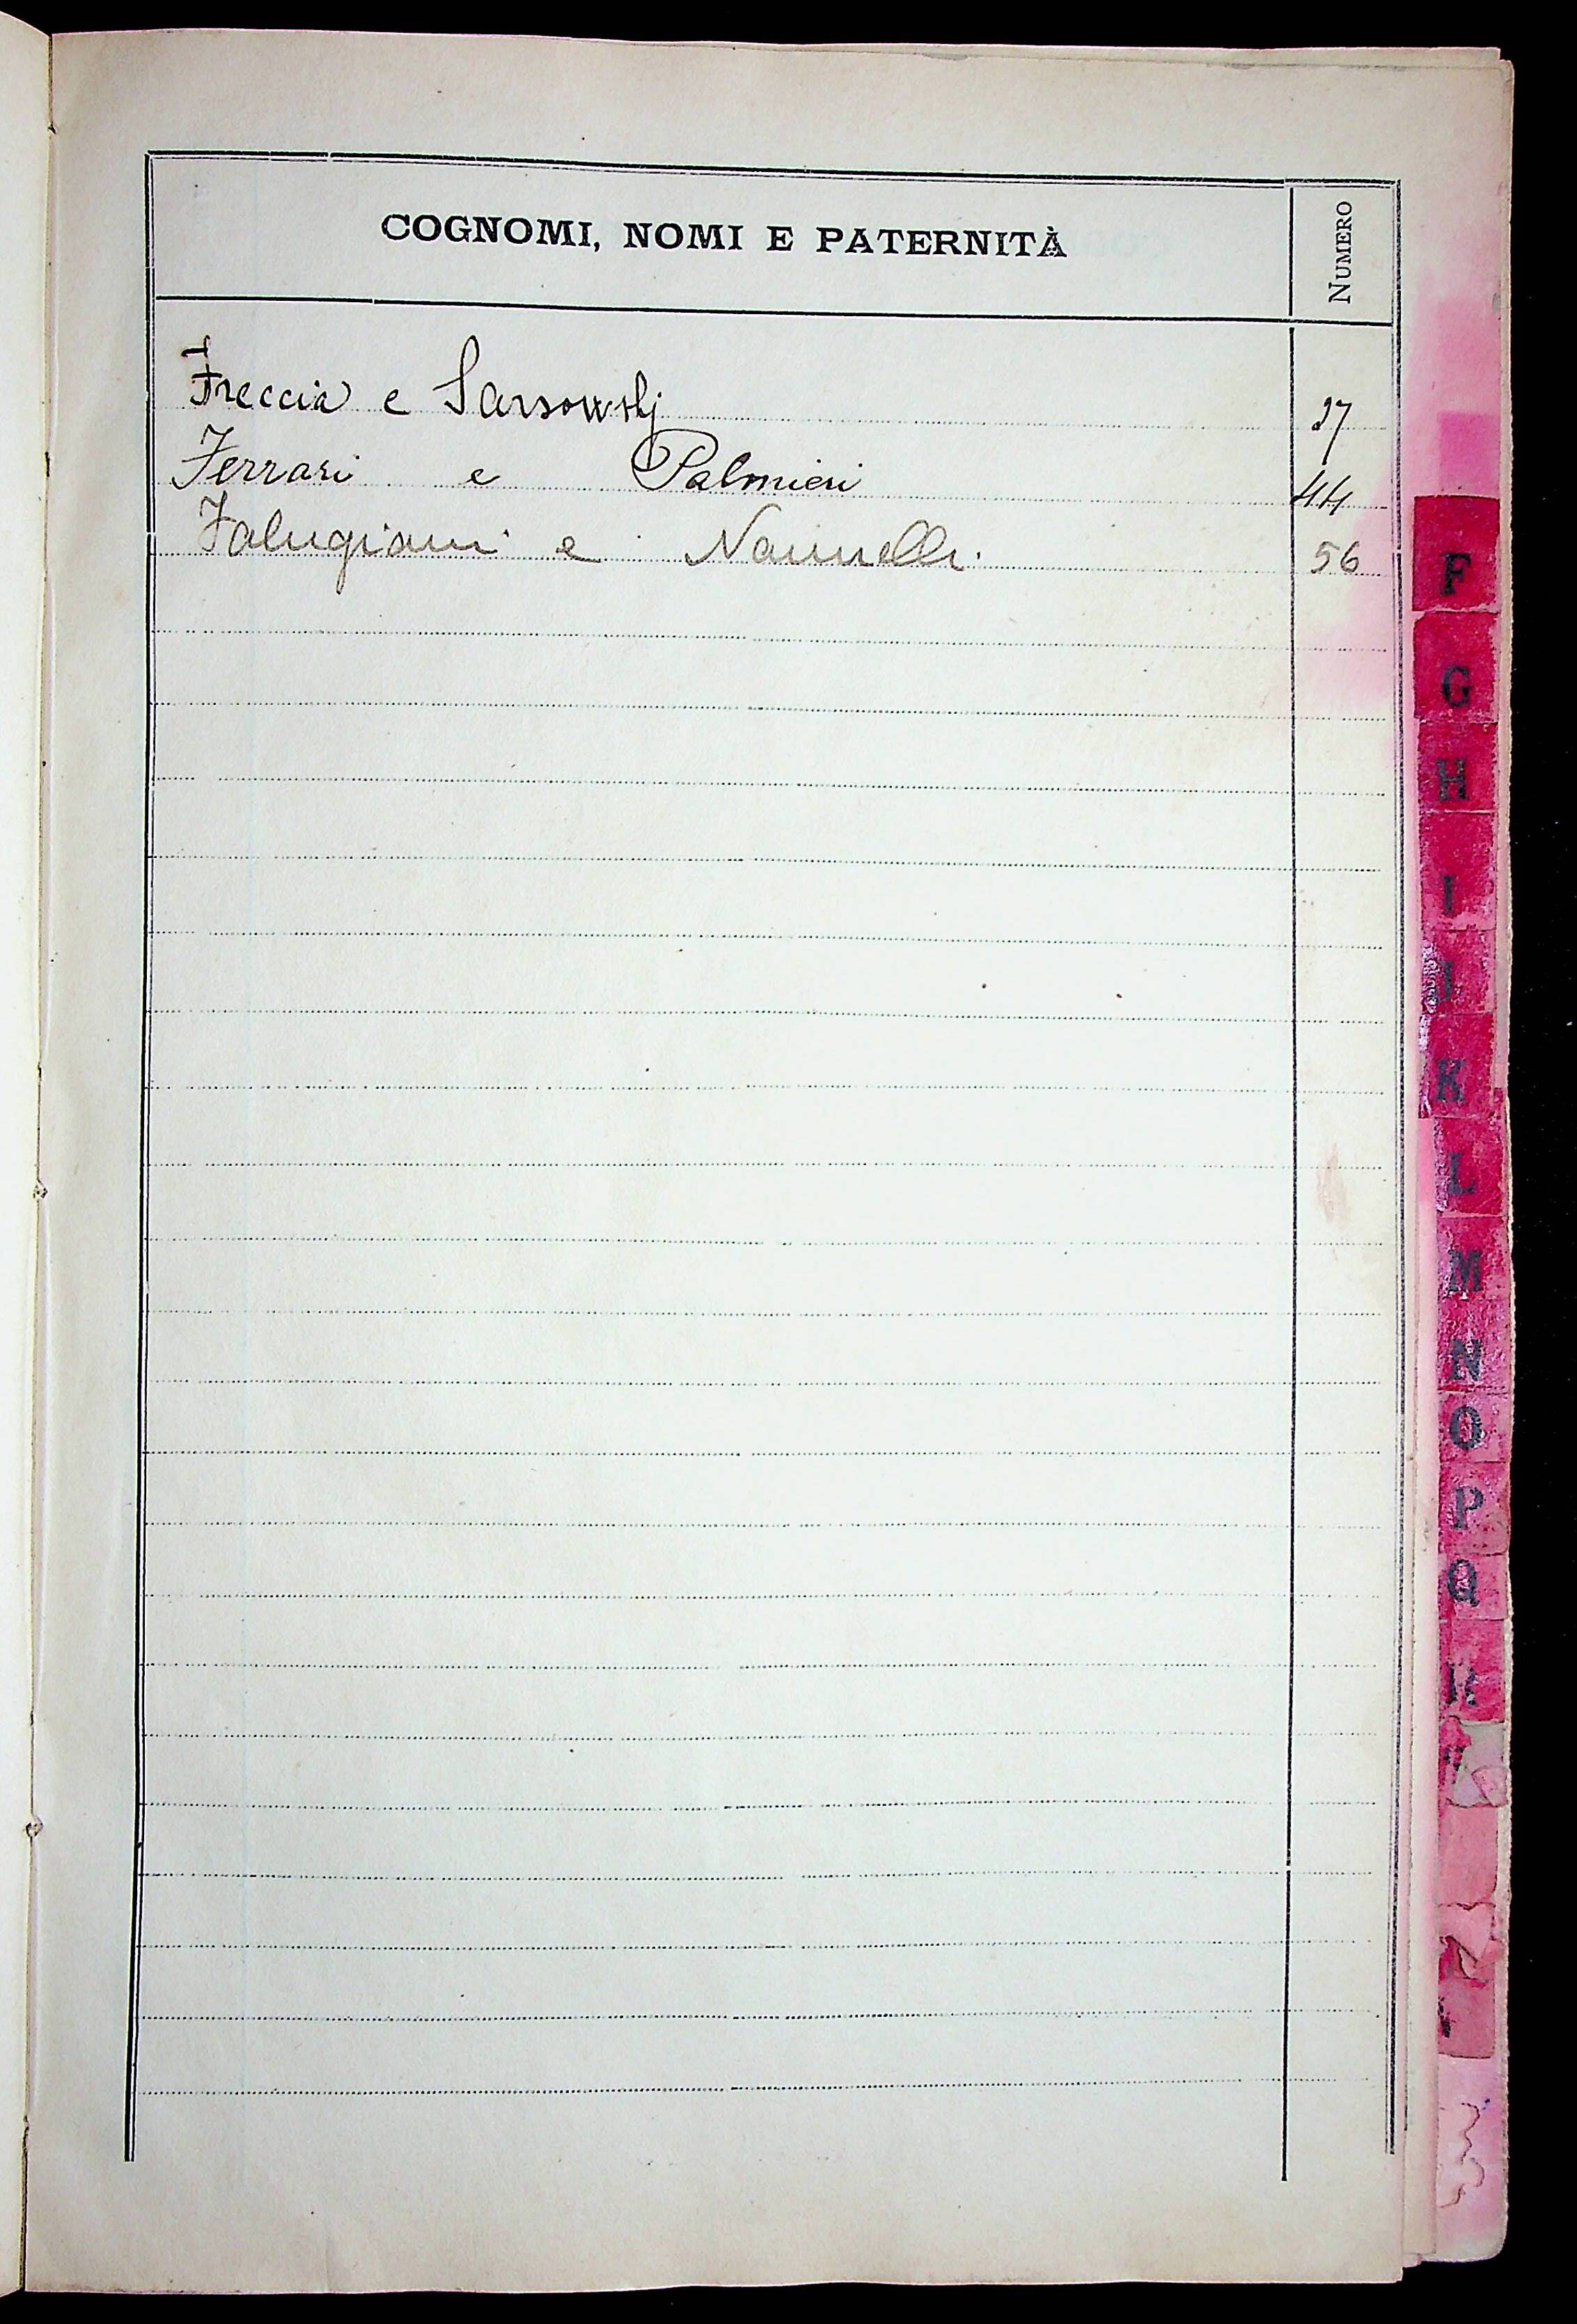 COGNOMI, NOMI E PATERNITÀ
NUMERO
Freccia e Sarsowskj 27
Ferrari e Palmieri 44
Falugiani e Nannelli 56
F
G
H
I
J
K
L
M
N
O
P
Q
R